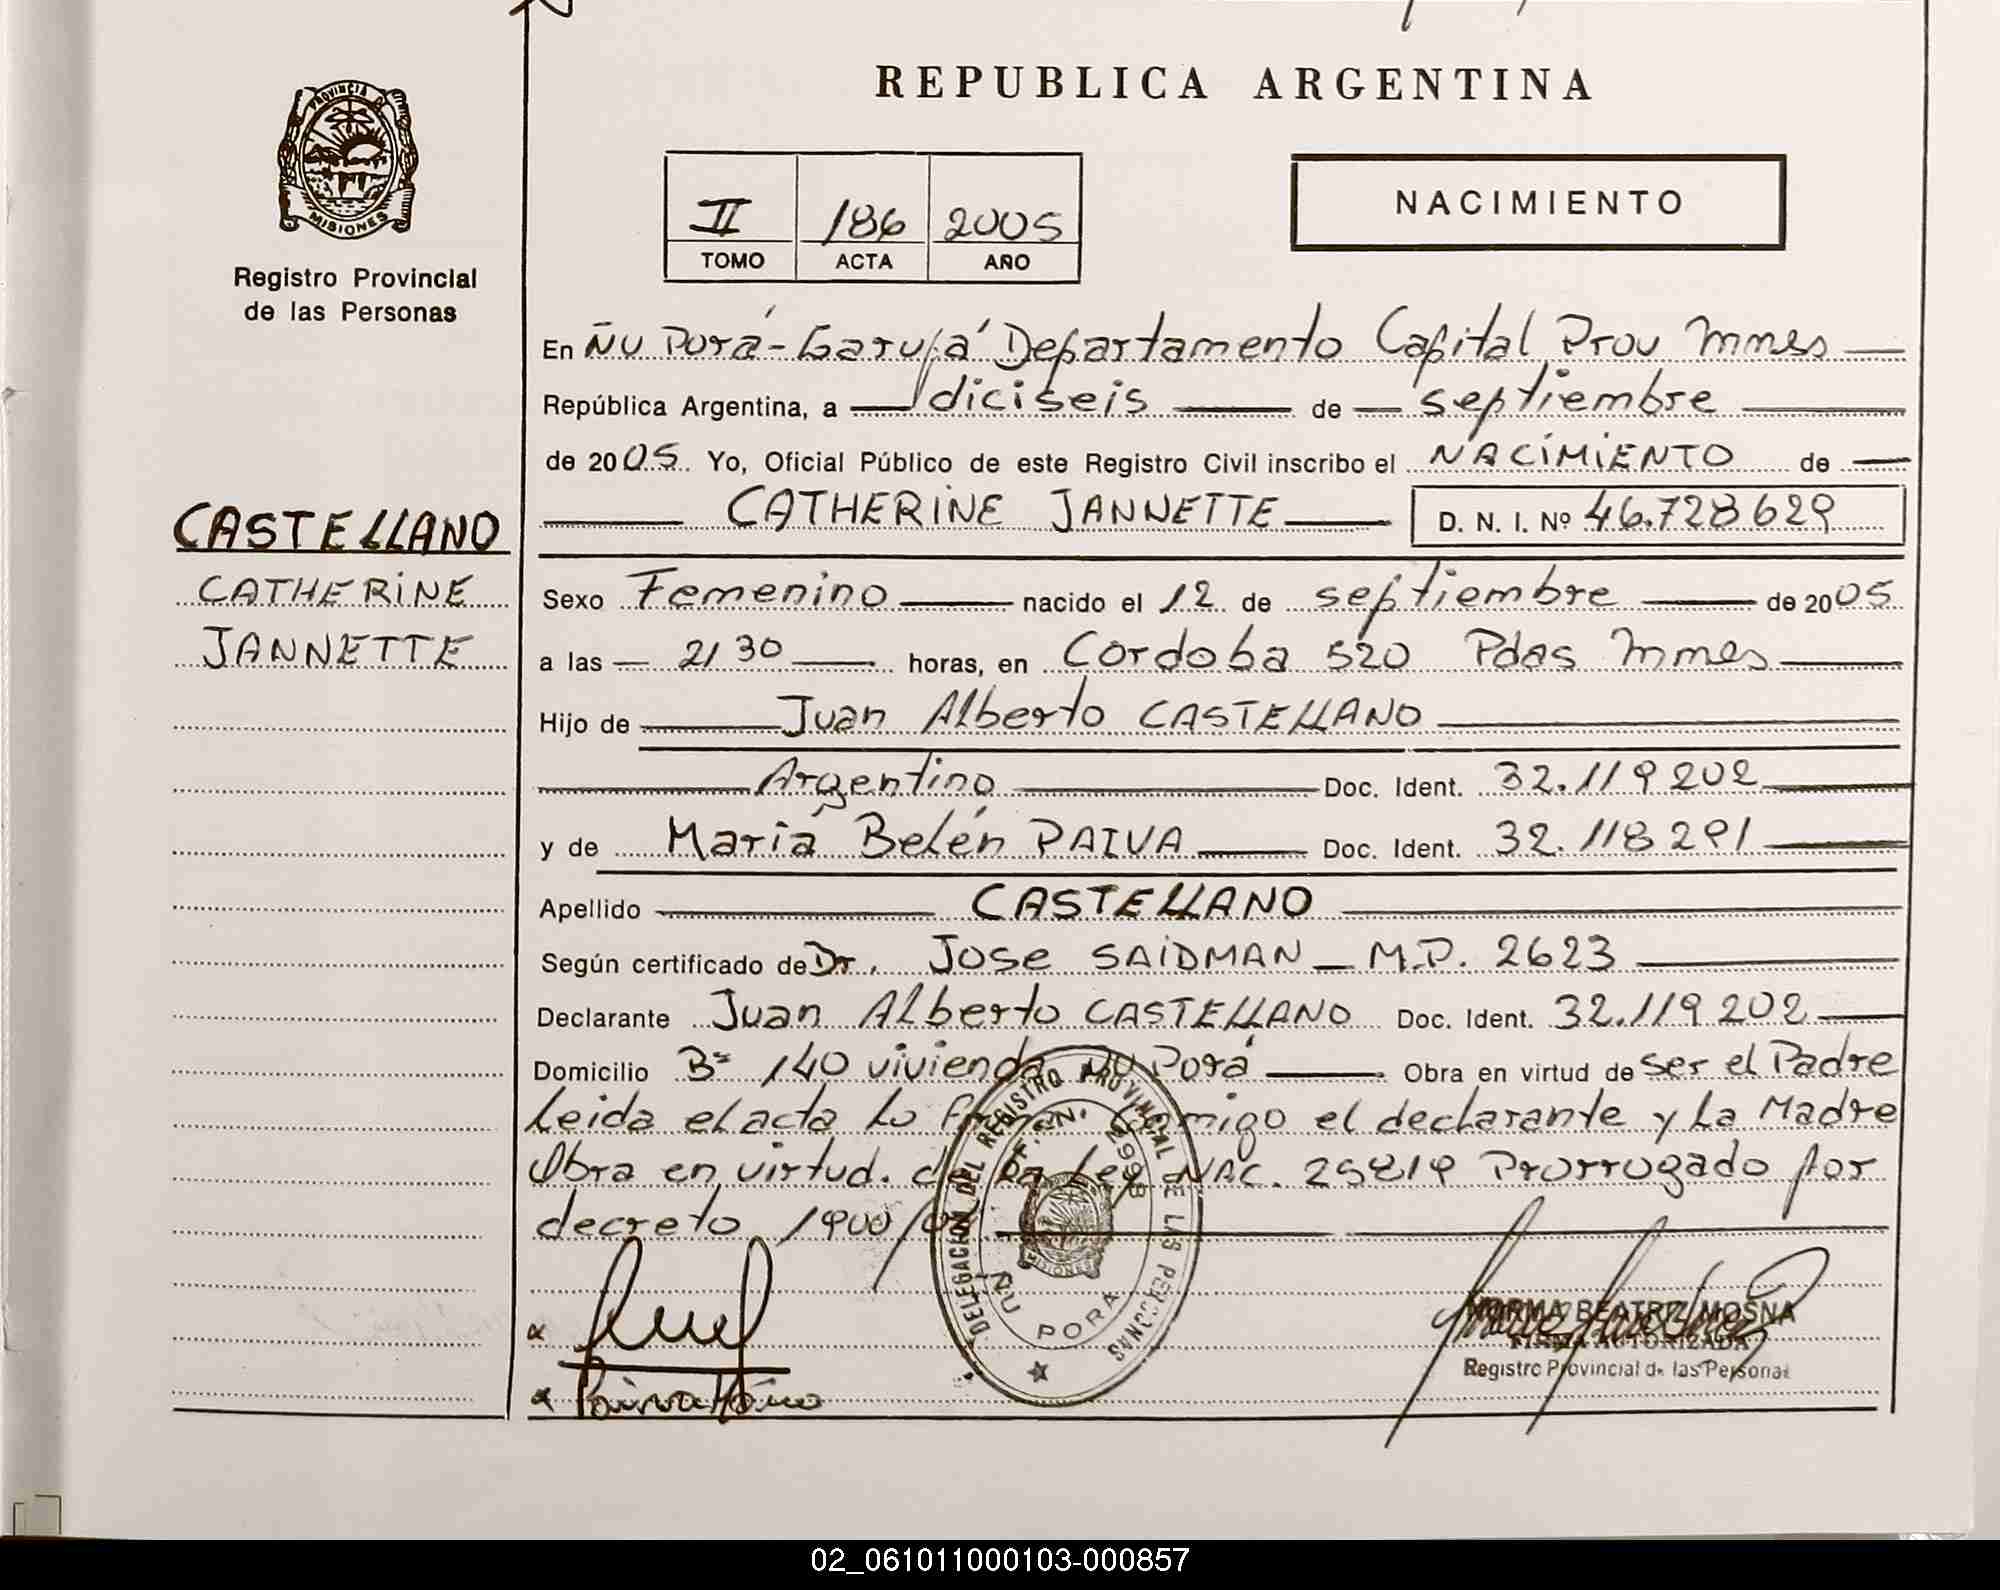 REPUBLICA ARGENTINA
PROVINCIA DE
MISIONES
Registro Provincial
de las Personas
II 186 2005
TOMO ACTA AÑO
NACIMIENTO
En Ñu Porá - Garupá Departamento Capital Prov Mnes
República Argentina, a diciseis de septiembre
de 2005. Yo, Oficial Público de este Registro Civil inscribo el NACIMIENTO de
CATHERINE JANNETTE D. N. I. Nº 46.728629
CASTELLANO
CATHERINE
JANNETTE
Sexo Femenino nacido el 12 de septiembre de 2005
a las 21 30 horas, en Cordoba 520 Pdas Mnes
Hijo de Juan Alberto CASTELLANO
Argentino Doc. Ident. 32.119202
y de Maria Belén PAIVA Doc. Ident. 32.118291
Apellido CASTELLANO
Según certificado de Dr. Jose SAIDMAN M.P. 2623
Declarante Juan Alberto CASTELLANO Doc. Ident. 32.119202
Domicilio Bº 140 vivienda Ñu Porá Obra en virtud de ser el Padre
Leida el acta Lo firman Conmigo el declarante y La Madre
Obra en virtud. de La Ley NAC. 25819 Prorrogado por
decreto 1900/
DELEGACION DEL REGISTRO PROVINCIAL DE LAS PERSONAS
ÑU PORA
MISIONES
NORMA BEATRIZ MOSNA
FIRMA AUTORIZADA
Registro Provincial de las Personas
02_061011000103-000857